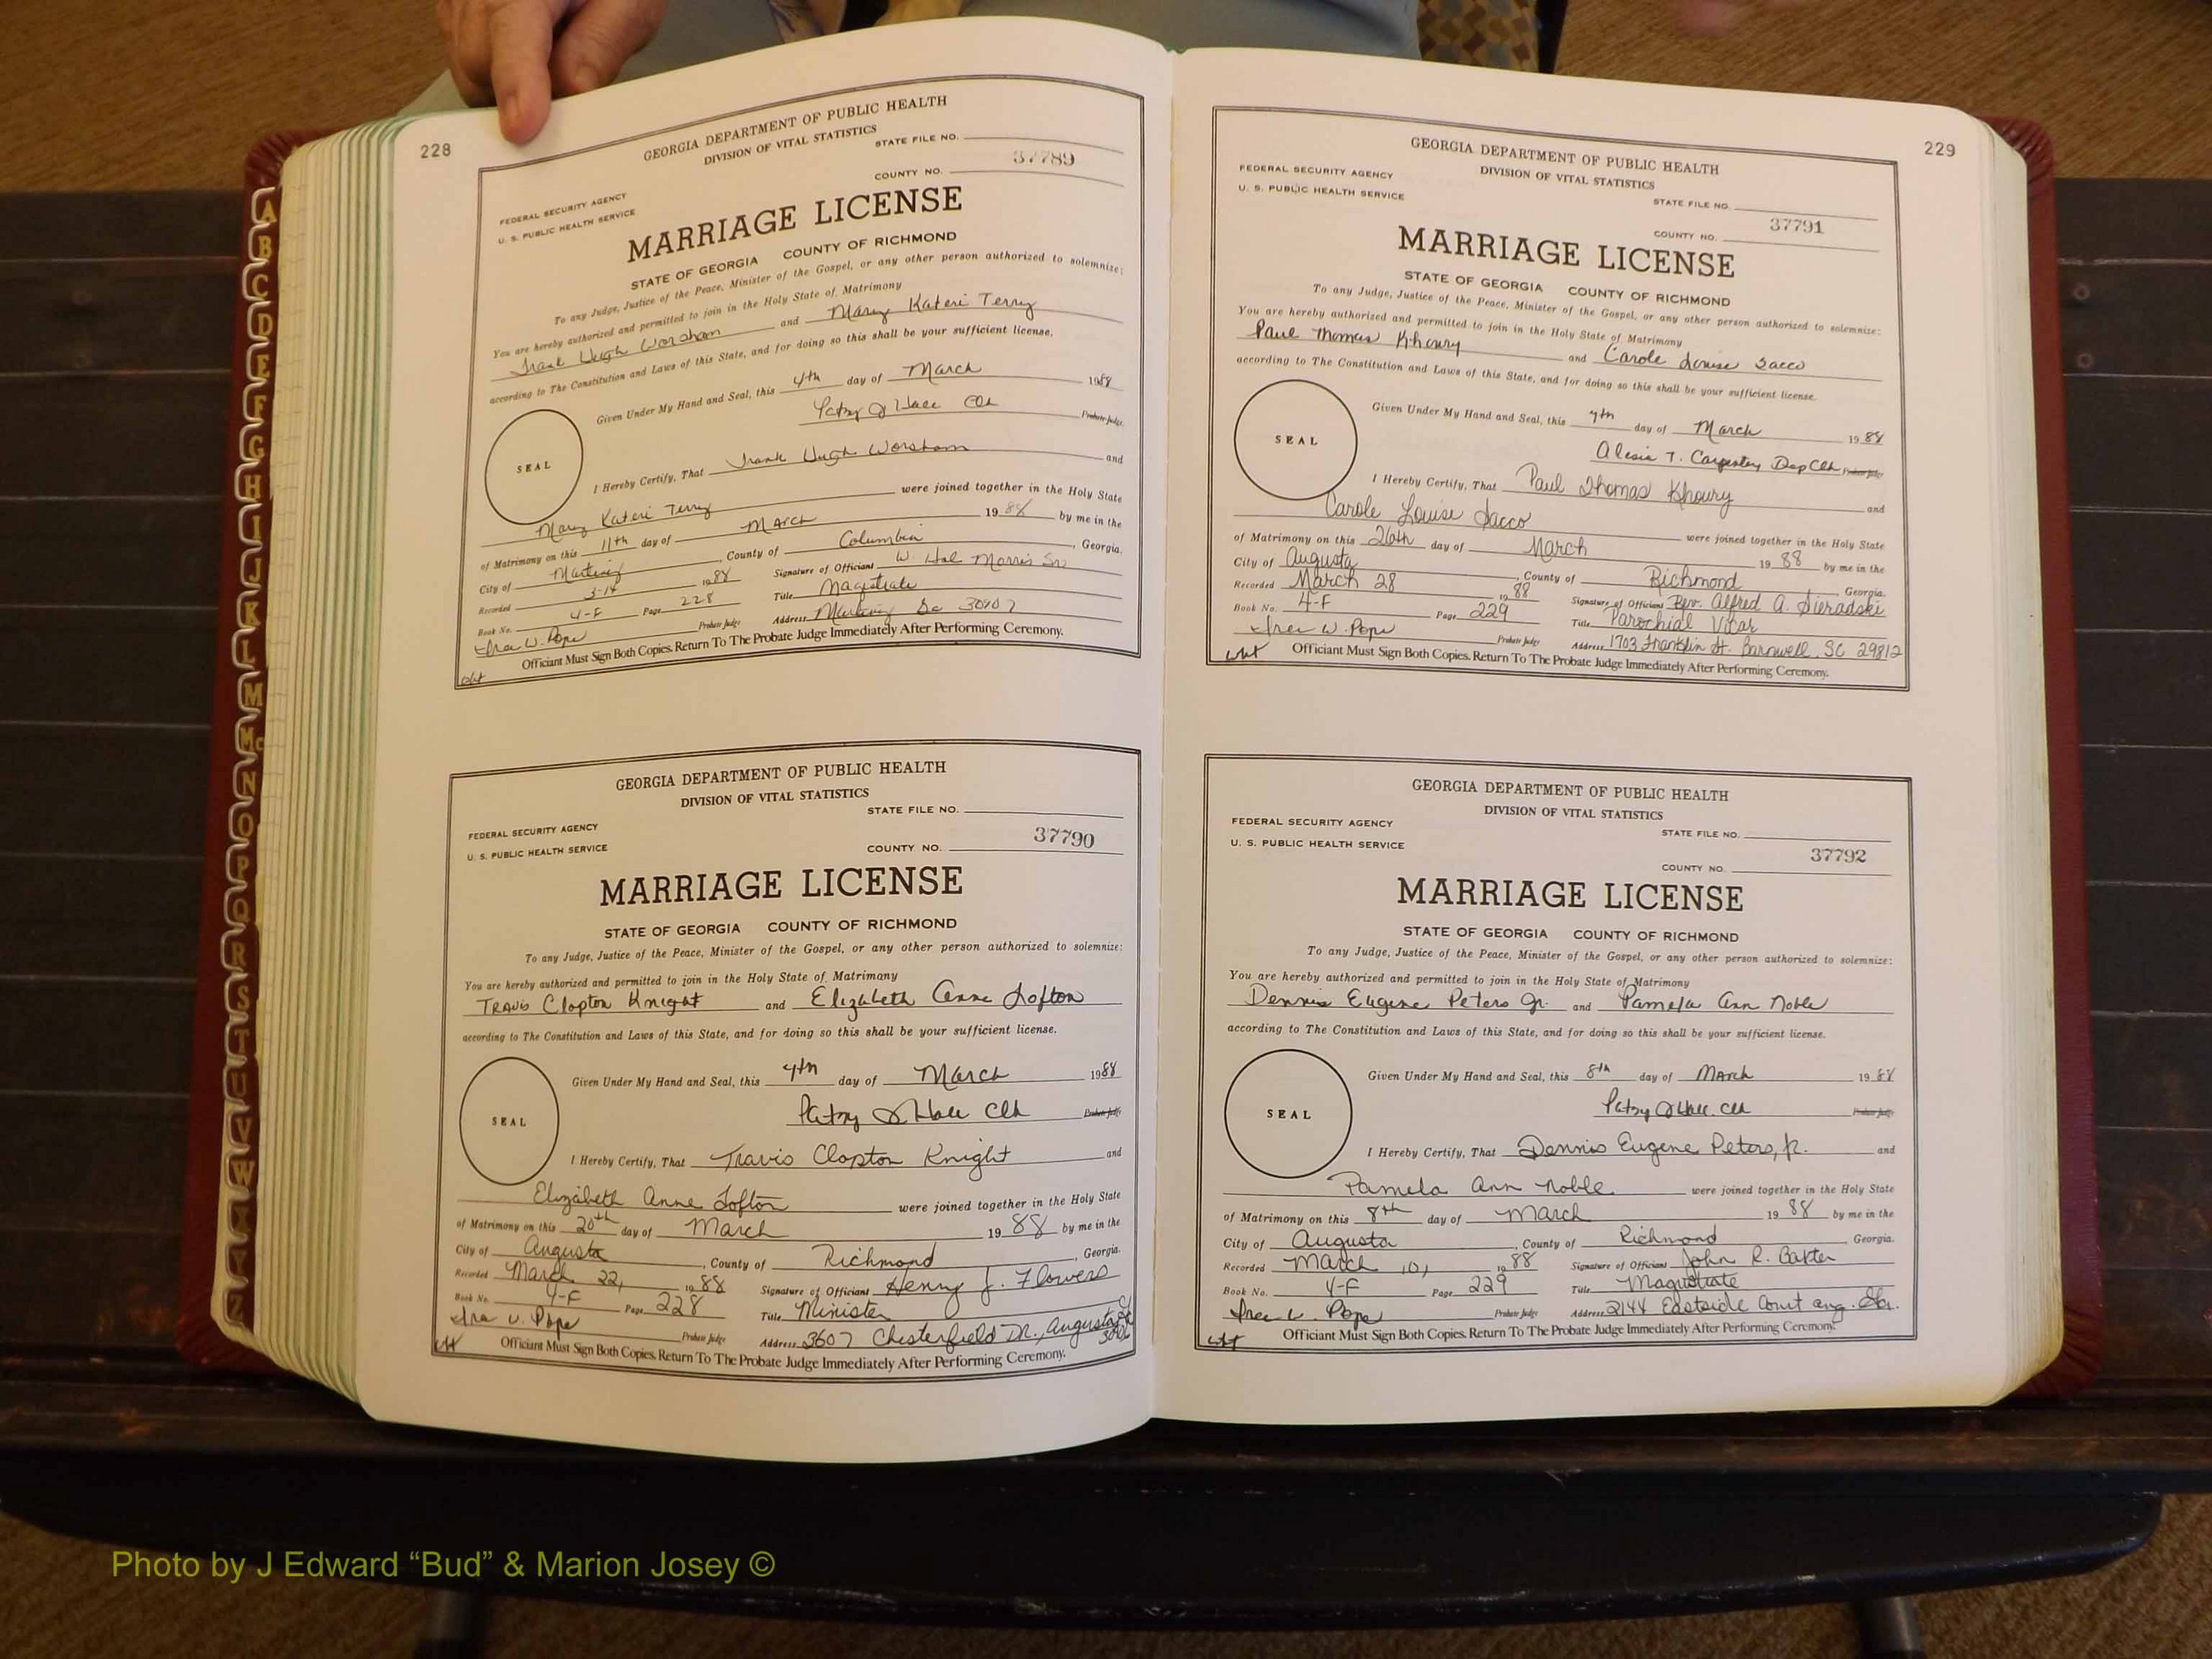 228
GEORGIA DEPARTMENT OF PUBLIC HEALTH
DIVISION OF VITAL STATISTICS
STATE FILE NO.
37789
COUNTY NO.
FEDERAL SECURITY AGENCY
U. S. PUBLIC HEALTH SERVICE
MARRIAGE LICENSE
STATE OF GEORGIA COUNTY OF RICHMOND
To any Judge, Justice of the Peace, Minister of the Gospel, or any other person authorized to solemnize:
You are hereby authorized and permitted to join in the Holy State of Matrimony
Frank Hugh Worsham and Mary Kateri Terry
according to The Constitution and Laws of this State, and for doing so this shall be your sufficient license.
Given Under My Hand and Seal, this 4th day of March 1988
Patsy J Hall Clk Probate Judge
SEAL
I Hereby Certify, That Frank Hugh Worsham and
Mary Kateri Terry were joined together in the Holy State
of Matrimony on this 11th day of March 1988 by me in the
City of Martinez, County of Columbia, Georgia.
Recorded 3-14 1988 Signature of Officiant W Hal Morris Sr
Book No. 4-F Page 228 Title Magistrate
Ira W. Pope Probate Judge Address Martinez Ga 30907
Officiant Must Sign Both Copies. Return To The Probate Judge Immediately After Performing Ceremony.
GEORGIA DEPARTMENT OF PUBLIC HEALTH
DIVISION OF VITAL STATISTICS
STATE FILE NO.
FEDERAL SECURITY AGENCY
37790
U. S. PUBLIC HEALTH SERVICE
COUNTY NO.
MARRIAGE LICENSE
STATE OF GEORGIA COUNTY OF RICHMOND
To any Judge, Justice of the Peace, Minister of the Gospel, or any other person authorized to solemnize:
You are hereby authorized and permitted to join in the Holy State of Matrimony
Travis Clopton Knight and Elizabeth Anne Lofton
according to The Constitution and Laws of this State, and for doing so this shall be your sufficient license.
Given Under My Hand and Seal, this 4th day of March 1988
Patsy J Hall Clk Probate Judge
SEAL
I Hereby Certify, That Travis Clopton Knight and
Elizabeth Anne Lofton were joined together in the Holy State
of Matrimony on this 20th day of March 1988 by me in the
City of Augusta, County of Richmond, Georgia.
Recorded March 22, 1988 Signature of Officiant Henry J. Flowers
Book No. 4-F Page 228 Title Minister
Ira W. Pope Probate Judge Address 3607 Chesterfield Dr., Augusta, Ga
Officiant Must Sign Both Copies. Return To The Probate Judge Immediately After Performing Ceremony.
229
GEORGIA DEPARTMENT OF PUBLIC HEALTH
DIVISION OF VITAL STATISTICS
FEDERAL SECURITY AGENCY
U. S. PUBLIC HEALTH SERVICE
STATE FILE NO.
37791
COUNTY NO.
MARRIAGE LICENSE
STATE OF GEORGIA COUNTY OF RICHMOND
To any Judge, Justice of the Peace, Minister of the Gospel, or any other person authorized to solemnize:
You are hereby authorized and permitted to join in the Holy State of Matrimony
Paul Thomas Khoury and Carole Louise Sacco
according to The Constitution and Laws of this State, and for doing so this shall be your sufficient license.
Given Under My Hand and Seal, this 7th day of March 1988
Alesia T. Carpenter Dep Clk Probate Judge
SEAL
I Hereby Certify, That Paul Thomas Khoury and
Carole Louise Sacco were joined together in the Holy State
of Matrimony on this 26th day of March 1988 by me in the
City of Augusta, County of Richmond Georgia.
Recorded March 28 1988 Signature of Officiant Rev. Alfred A. Sieradski
Book No. 4-F Page 229 Title Parochial Vicar
Ira W. Pope Probate Judge Address 1703 Franklin St. Barnwell, SC 29812
Officiant Must Sign Both Copies. Return To The Probate Judge Immediately After Performing Ceremony.
GEORGIA DEPARTMENT OF PUBLIC HEALTH
DIVISION OF VITAL STATISTICS
FEDERAL SECURITY AGENCY
STATE FILE NO.
U. S. PUBLIC HEALTH SERVICE
37792
COUNTY NO.
MARRIAGE LICENSE
STATE OF GEORGIA COUNTY OF RICHMOND
To any Judge, Justice of the Peace, Minister of the Gospel, or any other person authorized to solemnize:
You are hereby authorized and permitted to join in the Holy State of Matrimony
Dennis Eugene Peters Jr. and Pamela Ann Noble
according to The Constitution and Laws of this State, and for doing so this shall be your sufficient license.
Given Under My Hand and Seal, this 8th day of March 1988
Patsy J Hall Clk Probate Judge
SEAL
I Hereby Certify, That Dennis Eugene Peters, Jr. and
Pamela Ann Noble were joined together in the Holy State
of Matrimony on this 8th day of March 1988 by me in the
City of Augusta, County of Richmond Georgia.
Recorded March 10, 1988 Signature of Officiant John R. Baxter
Book No. 4-F Page 229 Title Magistrate
Ira W. Pope Probate Judge Address 2144 Eastside Court Aug. Ga.
Officiant Must Sign Both Copies. Return To The Probate Judge Immediately After Performing Ceremony.
A
B
C
D
E
F
G
H
I
J
K
L
M
Mc
N
O
P
Q
R
S
T
U
V
W
X
Y
Z
Photo by J Edward “Bud” & Marion Josey ©